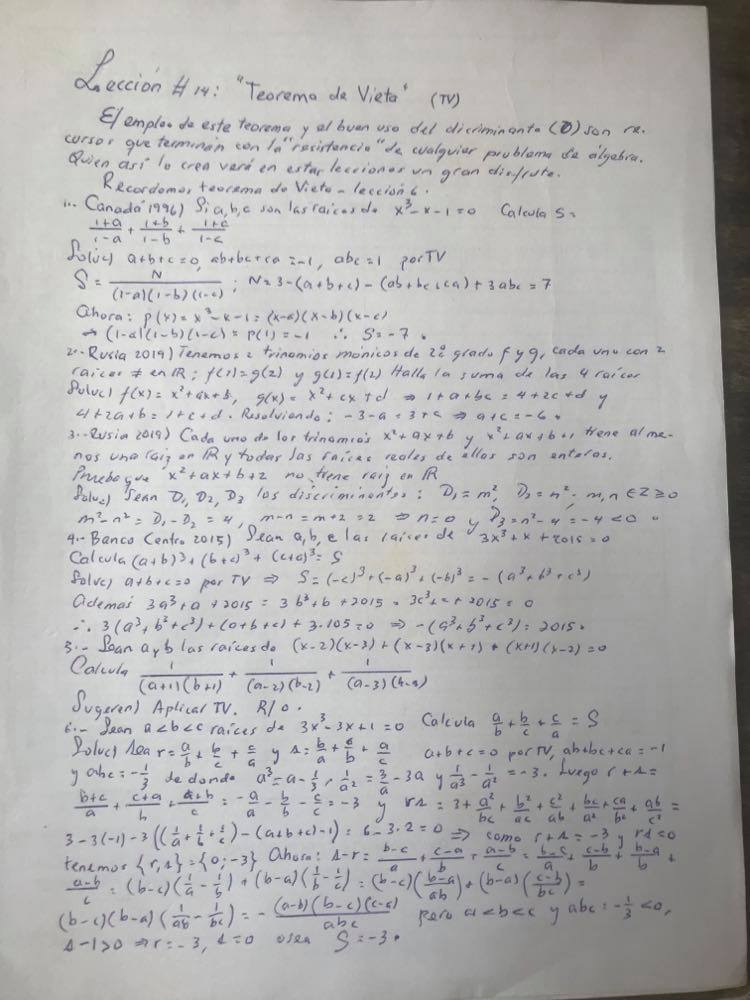 Lección # 14: "Teorema de Vieta" (TV)
El empleo de este teorema y el buen uso del discriminante (D) son re-
cursos que terminan con la "resistencia" de cualquier problema de álgebra.
Quien así lo crea verá en estas lecciones un gran disfrute.
Recordemos teorema de Vieta - lección 6.
1.- Canadá 1996) Si a, b, c son las raíces de x³-x-1=0 Calcula S=
(1+a)/(1-a) + (1+b)/(1-b) + (1+c)/(1-c)
Soluc) a+b+c=0, ab+bc+ca=-1, abc=1 por TV
S = N/((1-a)(1-b)(1-c)) ; N=3-(a+b+c)-(ab+bc+ca)+3abc=7
Ahora: p(x)=x³-x-1=(x-a)(x-b)(x-c)
⇒ (1-a)(1-b)(1-c)=p(1)=-1 ∴ S=-7.
2.- Rusia 2019) Tenemos 2 trinomios mónicos de 2º grado f y g, cada uno con 2
raíces ≠ en ℝ; f(1)=g(2) y g(1)=f(2) Halla la suma de las 4 raíces
Soluc) f(x)=x²+ax+b, g(x)=x²+cx+d ⇒ 1+a+b=4+2c+d y
4+2a+b=1+c+d. Resolviendo: -3-a=3+c ⇒ a+c=-6.
3.- Rusia 2019) Cada uno de los trinomios x²+ax+b y x²+ax+b+1 tiene al me-
nos una raíz en ℝ y todas las raíces reales de ellos son enteras.
Pruebe que x²+ax+b+2 no tiene raíz en ℝ
Soluc) Sean D₁, D₂, D₃ los discriminantes: D₁=m², D₂=n²; m,n ∈ Z≥0
m²-n²=D₁-D₂=4, m-n=m+2=2 ⇒ n=0 y D₃=n²-4=-4<0.
4.- Banco Centro 2015) Sean a, b, c las raíces de 3x³+x+2015=0
Calcula (a+b)³+(b+c)³+(c+a)³=S
Soluc) a+b+c=0 por TV ⇒ S=(-c)³+(-a)³+(-b)³=-(a³+b³+c³)
Además 3a³+a+2015=3b³+b+2015=3c³+c+2015=0
∴ 3(a³+b³+c³)+(a+b+c)+3·2015=0 ⇒ -(a³+b³+c³)=2015.
5.- Sean a y b las raíces de (x-2)(x-3)+(x-3)(x+1)+(x+1)(x-2)=0
Calcula 1/((a+1)(b+1)) + 1/((a-2)(b-2)) + 1/((a-3)(b-3))
Sugeren) Aplicar TV. R/0.
6.- Sean a<b<c raíces de 3x³-3x+1=0 Calcula a/b + b/c + c/a = S
Soluc) Sea r=a/b+b/c+c/a y s=b/a+c/b+a/c a+b+c=0 por TV, ab+bc+ca=-1
y abc=-1/3 de donde a³=a-1/3, 1/a²=3/a-3a y 1/a³-1/a²=-3. Luego r+s=
(b+c)/a+(c+a)/b+(a+b)/c=-a/a-b/b-c/c=-3 y rs=3+a²/bc+b²/ac+c²/ab+bc/a²+ca/b²+ab/c²=
3-3(-1)-3((1/a+1/b+1/c)-(a+b+c)-1)=6-3·2=0 ⇒ como r+s=-3 y rs=0
tenemos {r,s}={0;-3} Ahora: s-r=(b-c)/a+(c-a)/b+(a-b)/c=(b-c)/a+(c-b)/b+(b-a)/b+
(a-b)/c=(b-c)(1/a-1/b)+(b-a)(1/b-1/c)=(b-c)((b-a)/ab)+(b-a)((c-b)/bc)=
(b-c)(b-a)(1/ab-1/bc)=-((a-b)(b-c)(c-a))/abc pero a<b<c y abc=-1/3<0,
s-r>0 ⇒ r=-3, s=0 o sea S=-3.